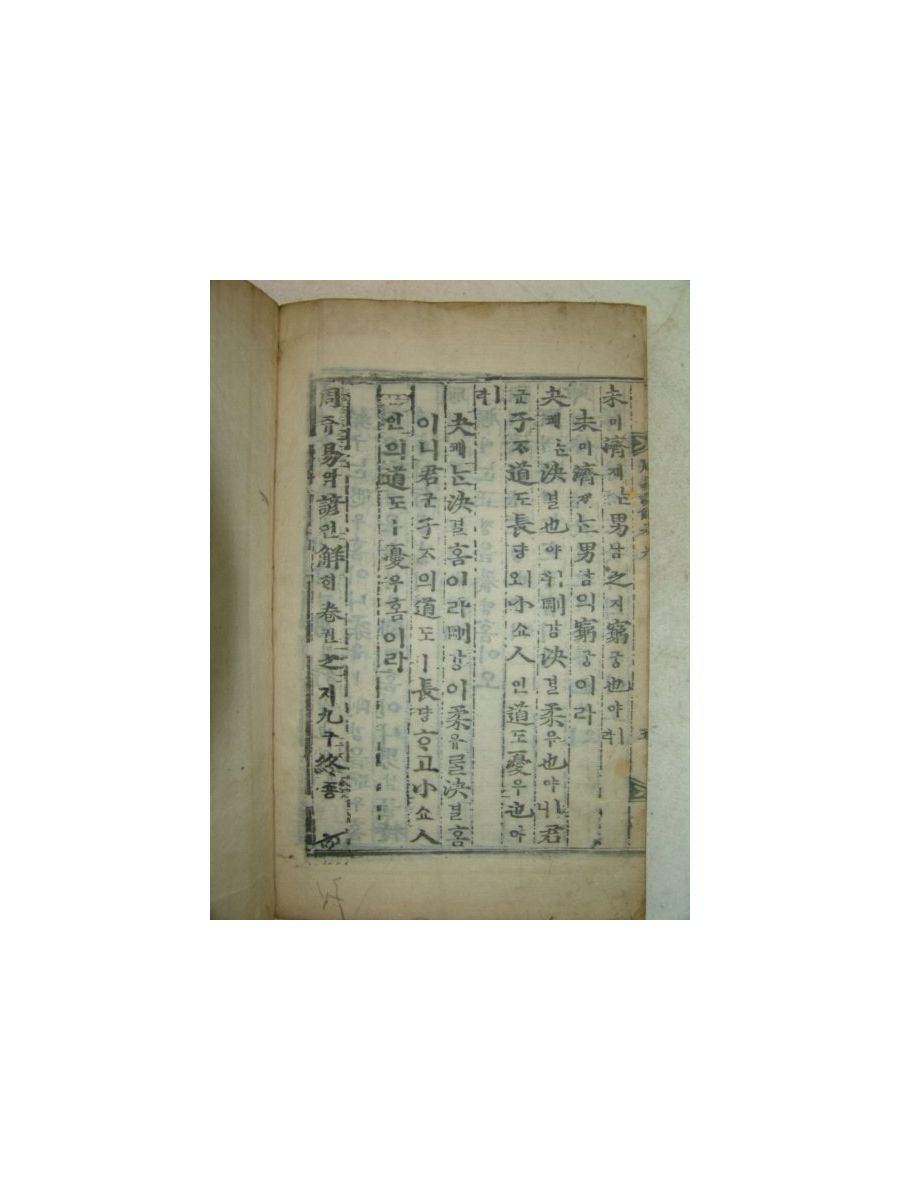 未미濟졔는男남之지窮궁也야ㅣ라
未미濟졔는男남의窮궁이라
夬쾌는決결也야ㅣ라剛강決결柔유也야ㅣ니君
군子ᄌᆞ道도長댱오小쇼人인道도憂우也야
ㅣ라
夬쾌는決결홈이라剛강이柔유를決결홈
이니君군子ᄌᆞ의道도ㅣ長댱ᄒᆞ고小쇼人
인의道도ㅣ憂우홈이라
周쥬易역諺언解ᄒᆡ卷권之지九구終죵